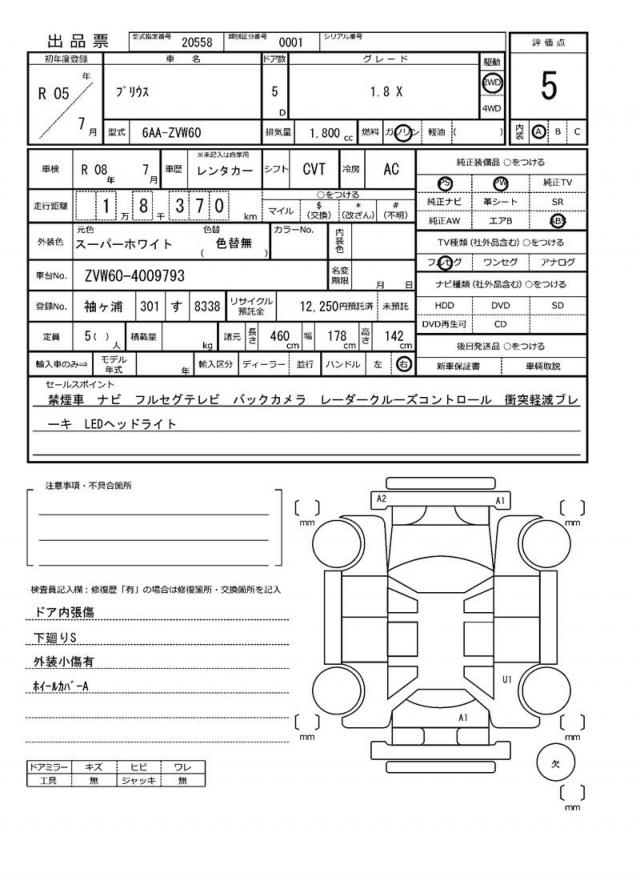 出品票
型式指定番号 20558 類別区分番号 0001 シリアル番号
評価点
5
内装 A B C
初年度登録 車名 ドア数 グレード 駆動
R 05 年 7 月
プリウス 5 D 1.8 X 2WD 4WD
型式 6AA-ZVW60 排気量 1,800 cc 燃料 ガソリン 軽油 ( )
車検 R 08 年 7 月 車歴 ※未記入は自家用 レンタカー シフト CVT 冷房 AC
純正装備品 ○をつける
PS PW 純正TV
純正ナビ 革シート SR
純正AW エアB ABS
走行距離 1 万 8 千 3 7 0 km
○をつける
マイル $(交換) *(改ざん) #(不明)
TV種類(社外品含む)○をつける
フルセグ ワンセグ アナログ
外装色 元色 スーパーホワイト 色替 ( 色替無 ) カラーNo. 内装色
ナビ種類(社外品含む)○をつける
HDD DVD SD
DVD再生可 CD
車台No. ZVW60-4009793 名変期限 月 日
登録No. 袖ヶ浦 301 す 8338 リサイクル預託金 12,250円預託済 未預託
定員 5( )人 積載量 kg 諸元 長さ 460 cm 幅 178 cm 高さ 142 cm
後日発送品 ○をつける
新車保証書 車輌取説
輸入車のみ⇒ モデル年式 年 輸入区分 ディーラー 並行 ハンドル 左 右
セールスポイント
禁煙車 ナビ フルセグテレビ バックカメラ レーダークルーズコントロール 衝突軽減ブレ
ーキ LEDヘッドライト
注意事項・不具合箇所
検査員記入欄：修復歴「有」の場合は修復箇所・交換箇所を記入
ドア内張傷
下廻りS
外装小傷有
ﾎｲｰﾙｶﾊﾞｰA
ドアミラー キズ ヒビ ワレ
工具 無 ジャッキ 無
A2 A1
[ ] mm [ ] mm
U1
A1
[ ] mm [ ] mm
欠
[ ] mm